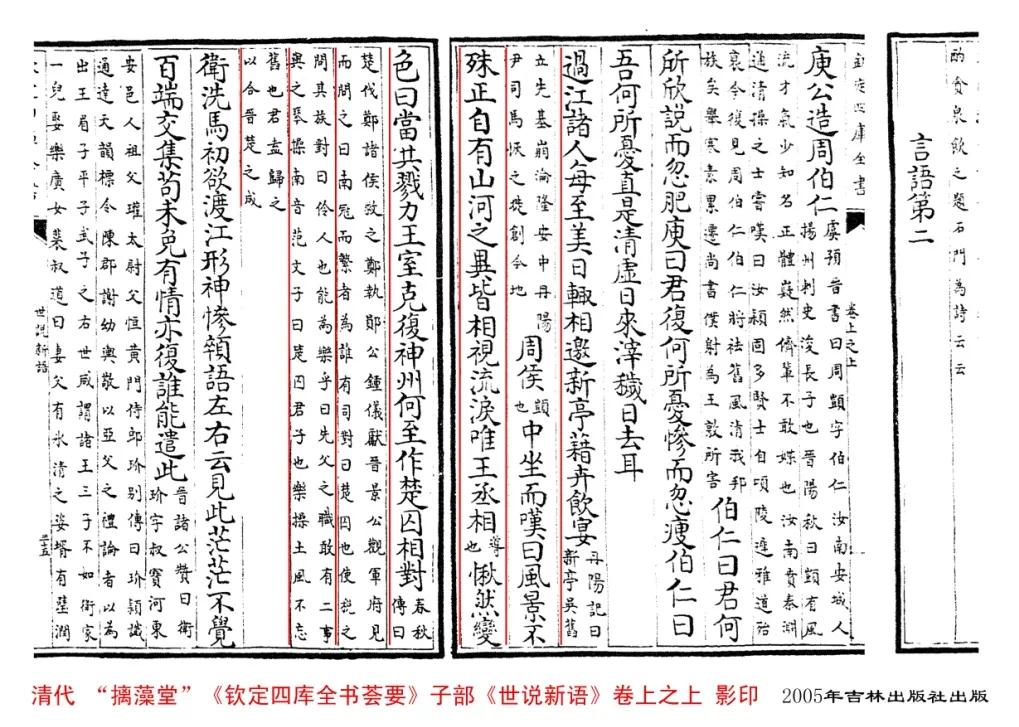 酌貪泉飲之題石門為詩云云
言語第二
欽定四庫全書
卷上之上
庾公造周伯仁
虞預晉書曰周顗字伯仁汝南安城人
揚州刺史浚長子也晉陽秋曰顗有風
流才氣少知名正體嶷然儕輩不敢媟也汝南賁泰淵
通清操之士嘗嘆曰汝潁固多賢士自頃陵遲雅道殆
衰今復見周伯仁伯仁將祛舊風清我邦
族矣舉寒素累遷尚書僕射為王敦所害
伯仁曰君何
所欣說而忽肥庾曰君復何所憂慘而忽瘦伯仁曰
吾何所憂直是清虛日來滓穢日去耳
過江諸人每至美日輙相邀新亭藉卉飲宴
丹陽記曰
新亭吳舊
立先基崩淪隆安中丹陽
尹司馬恢之徙創今地
周侯顗也中坐而嘆曰風景不
殊正自有山河之異皆相視流淚唯王丞相導也愀然變
色曰當共戮力王室克復神州何至作楚囚相對
春秋
傳曰
楚伐鄭諸侯救之鄭執鄖公鍾儀獻晉景公觀軍府見
而問之曰南冠而縶者為誰有司對曰楚囚也使稅之
問其族對曰伶人也能為樂乎曰先父之職敢有二事
與之琴操南音范文子曰楚囚君子也樂操土風不忘
舊也君盍歸之
以合晉楚之成
衛洗馬初欲渡江形神慘顇語左右云見此茫茫不覺
百端交集苟未免有情亦復誰能遣此
晉諸公贊曰衛
玠字叔寶河東
安邑人祖父瓘太尉父恒黃門侍郎玠別傳曰玠穎識
通達天韻標令陳郡謝幼輿敬以亞父之禮論者以為
出王眉子平子武子之右世咸謂諸王三子不如衛家
一兒娶樂廣女裴叔道曰妻父有冰清之姿壻有璧潤
世說新語
二十五
清代 “摛藻堂”《钦定四库全书荟要》子部《世说新语》卷上之上 影印 2005年吉林出版社出版